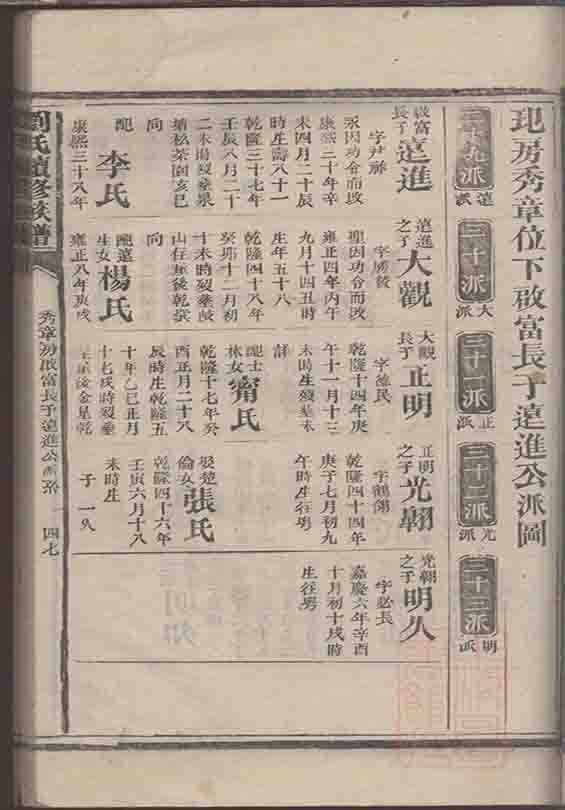 玘房秀章位下啟富長子遠進公派圖
二十九派 遠派
三十派 大派
三十一派 正派
三十二派 光派
三十三派 明派
啟富長子 遠進
字尹祚
永因功令而改
康熙二十年辛
未四月二十辰
時生壽八十一
乾隆三十七年
壬辰八月二十
二未時歿葬泉
塘枚茶園亥巳
向
配 李氏
康熙三十八年
遠進之子 大觀
聖因功令而改
雍正四年丙午
九月十四丑時
生年五十八
乾隆四十八年
癸卯十二月初
十未時歿葬
山任屋後乾巽
向
配遠生女 楊氏
雍正八年庚戌
大觀長子 正明
乾隆十四年庚
午十一月十三
未時生歿葬未
詳
配士林女 甯氏
乾隆十七年癸
酉正月二十八
辰時生乾隆五
十年乙巳正月
十七戌時歿葬
正明之子 光翱
字鶴翎
乾隆四十四年
庚子七月初九
午時生往粤
倫女 張氏
乾隆四十六年
壬寅六月十八
未時生
子一久
光翱之子 明久
字必長
嘉慶六年辛酉
十月初十戌時
生往粤
劉氏續修族譜
秀章房啟富長子遠進公派系
四七